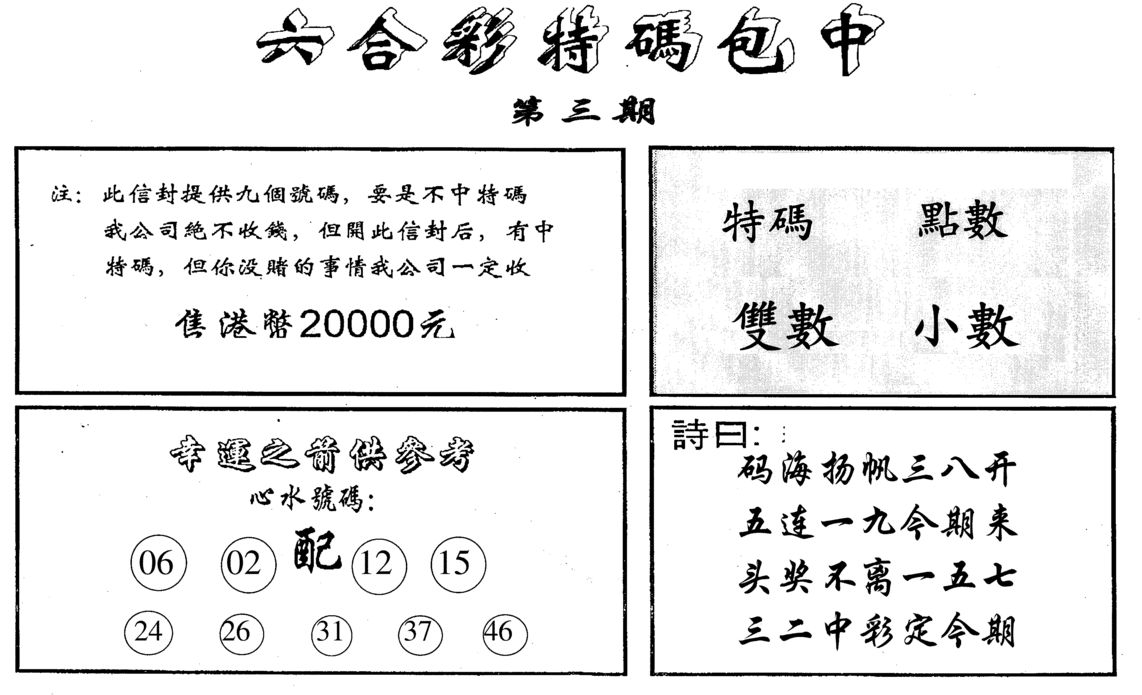 六合彩特碼包中
第三期
注：此信封提供九個號碼，要是不中特碼
我公司絶不收錢，但開此信封后，有中
特碼，但你没賭的事情我公司一定收
售港幣20000元
特碼 點數
雙數 小數
幸運之箭供參考
心水號碼：
06 02 配 12 15
24 26 31 37 46
詩曰：
码海扬帆三八开
五连一九今期来
头奖不离一五七
三二中彩定今期